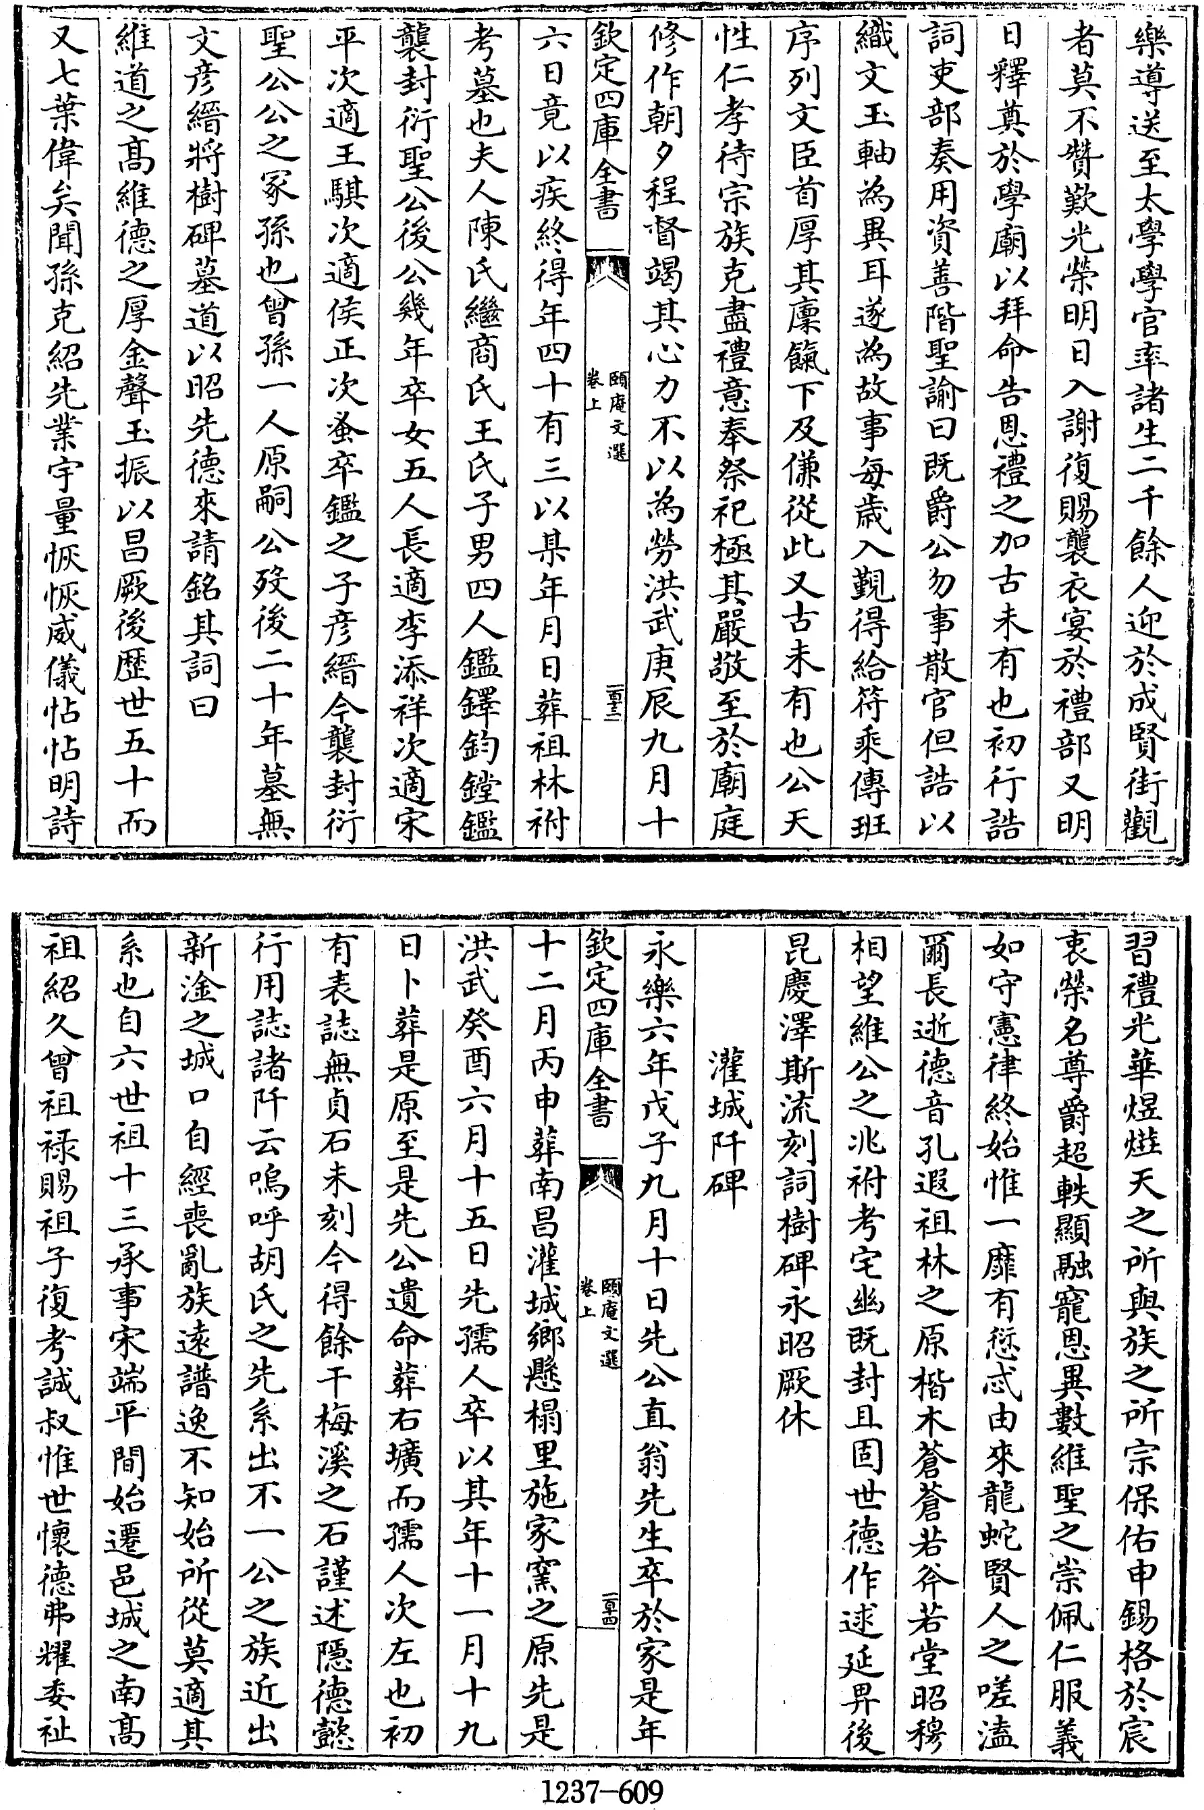 樂導送至太學學官率諸生二千餘人迎於成賢街觀
者莫不贊歎光榮明日入謝復賜襲衣宴於禮部又明
日釋奠於學廟以拜命告恩禮之加古未有也初行誥
詞吏部奏用資善階聖諭曰既爵公勿事散官但誥以
織文玉軸為異耳遂為故事每歲入覲得給符乘傳班
序列文臣首厚其廩餼下及傔從此又古未有也公天
性仁孝待宗族克盡禮意奉祭祀極其嚴敬至於廟庭
修作朝夕程督竭其心力不以為勞洪武庚辰九月十
欽定四庫全書
頤庵文選
卷上
一百十三
六日竟以疾終得年四十有三以某年月日葬祖林祔
考墓也夫人陳氏繼商氏王氏子男四人鑑鐸鈞鏜鑑
襲封衍聖公後公幾年卒女五人長適李添祥次適宋
平次適王騏次適侯正次蚤卒鑑之子彥縉今襲封衍
聖公公之冢孫也曾孫一人原嗣公歿後二十年墓無
文彥縉將樹碑墓道以昭先德來請銘其詞曰
維道之高維德之厚金聲玉振以昌厥後歷世五十而
又七葉偉矣聞孫克紹先業宇量恢恢威儀怗怗明詩
習禮光華煜爚天之所與族之所宗保佑申錫格於宸
衷榮名尊爵超軼顯融寵恩異數維聖之崇佩仁服義
如守憲律終始惟一靡有愆忒由來龍蛇賢人之嗟溘
爾長逝德音孔遐祖林之原楷木蒼蒼若斧若堂昭穆
相望維公之兆祔考宅幽既封且固世德作逑延畀後
昆慶澤斯流刻詞樹碑永昭厥休
灌城阡碑
永樂六年戊子九月十日先公直翁先生卒於家是年
欽定四庫全書
頤庵文選
卷上
一百十四
十二月丙申葬南昌灌城鄉懸榻里施家窯之原先是
洪武癸酉六月十五日先孺人卒以其年十一月十九
日卜葬是原至是先公遺命葬右壙而孺人次左也初
有表誌無貞石未刻今得餘干梅溪之石謹述隱德懿
行用誌諸阡云嗚呼胡氏之先系出不一公之族近出
新淦之城口自經喪亂族遠譜逸不知始所從莫適其
系也自六世祖十三承事宋端平間始遷邑城之南高
祖紹久曾祖祿賜祖子復考誠叔惟世懷德弗耀委祉
1237-609